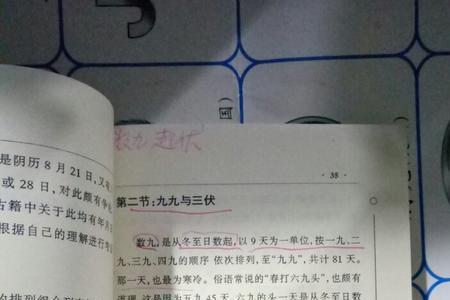 是阴历 8 月 21 日，又
或 28 日，对此颇有争
古籍中关于此均有年月
根据自己的理解进行
数九 起伏
· 38 ·
第二节：九九与三伏
数九，是从冬至日数起，以 9 天为一单位，按一九、二
九、三九、四九的顺序 依次排列，至“九九”，共计 81 天。
那一天，也最为寒冷。俗语常说的“春打六九头”，也颇有
道理，这是因为五九 45 天，六九的头一天是从冬至日数